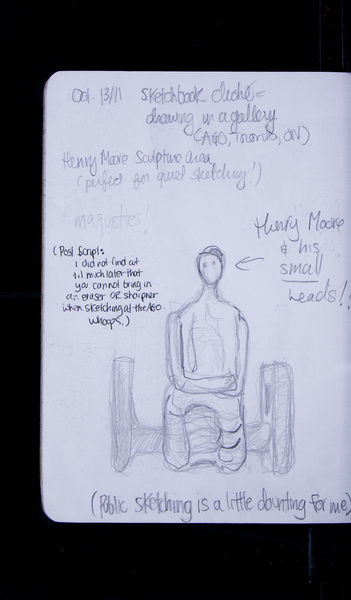 Oct. 13/11 Sketchbook cliché =
drawing in a gallery
(AGO, Toronto, ON)
Henry Moore Sculpture Area
(perfect for quiet sketching!)
maquettes!
Henry Moore
& his
small
heads!!
(Post Script:
I did not find out
'til much later that
you cannot bring in
an eraser OR sharpner
when sketching at the AGO.
Whoops.)
(Public sketching is a little daunting for me)